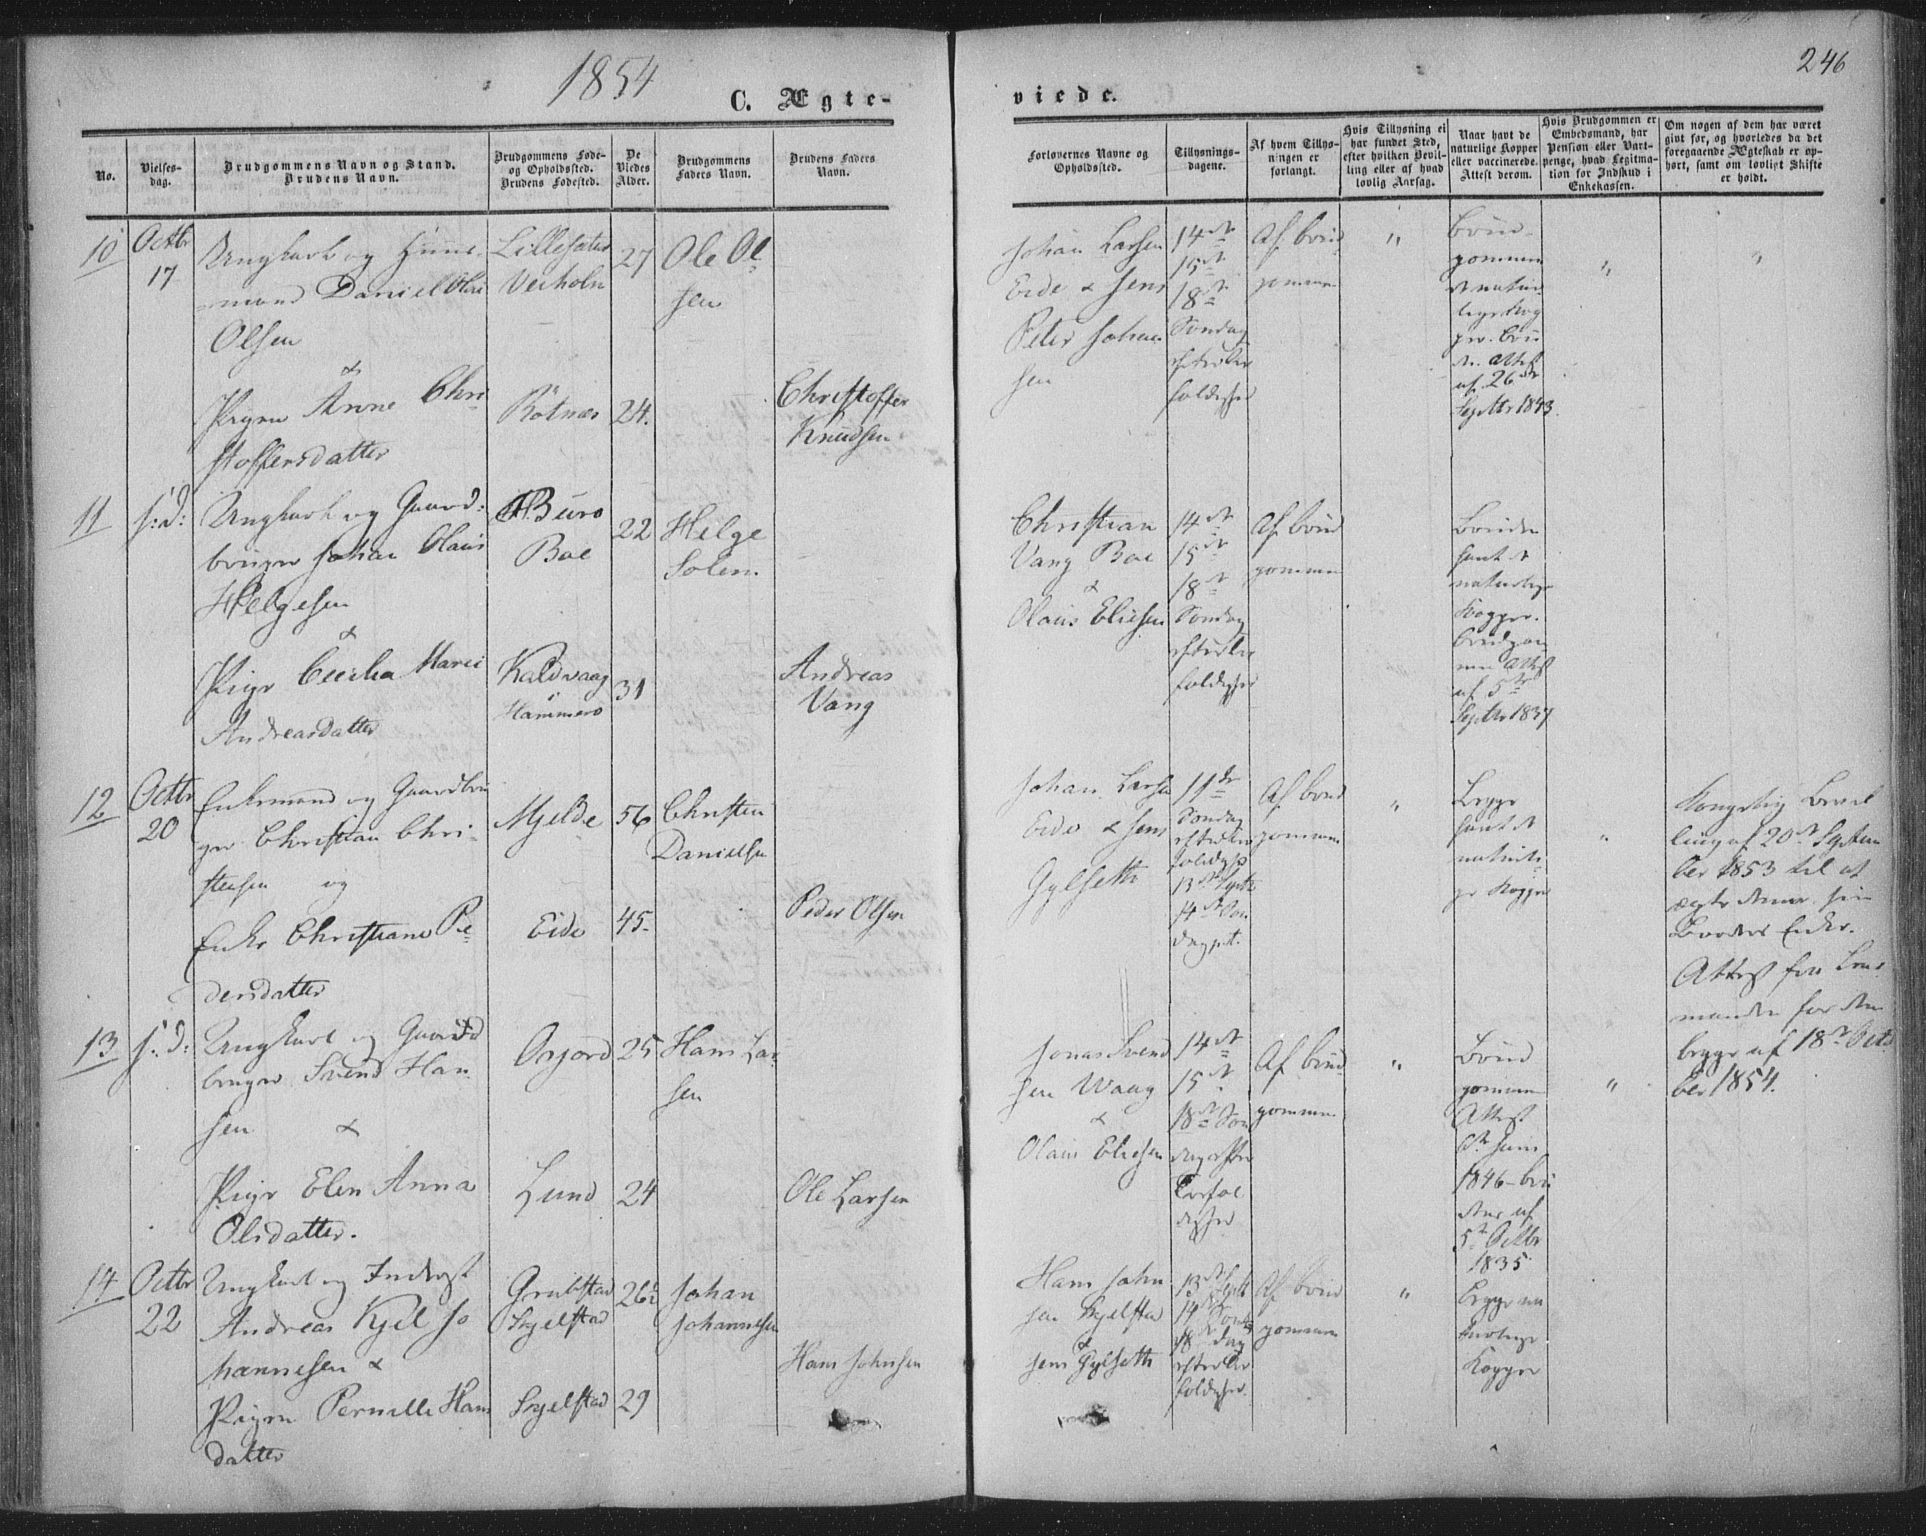 1854
246
C. Ægte-
viede.
No.
Vielses-
dag.
Brudgommens Navn og Stand.
Brudens Navn.
Brudgommens Føde-
og Opholdssted.
Brudens Fødested.
De
Viedes
Alder.
Brudgommens
Faders Navn.
Brudens Faders
Navn.
Forlovernes Navne og
Opholdssted.
Tillysnings-
dagene.
Af hvem Tillys-
ningen er
forlangt.
Hvis Tillysning ei
har fundet Sted,
efter hvilken Bevil-
ling eller af hvad
lovlig Aarsag.
Naar havt de
naturlige Kopper
eller vaccinerede.
Attest derom.
Hvis Brudgommen er
Embedsmand, har
Pension eller Vart-
penge, hvad Legitima-
tion for Indskud i
Enkekassen.
Om nogen af dem har været
gift før, og hvorledes da det
foregaaende Ægteskab er op-
hørt, samt om lovligt Skifte
er holdt.
10
Octbr
17
Ungkarl og Huus-
mand Daniel
Olsen
&
Pigen Anne Chri
stoffersdatter
27
24.
Ole Ol
sen
Christoffer
Knudsen
Johan Larsen
Eide & Jens
Peter Johan
sen
14de
15de
18de
Søndag
efter Tre
foldighed
Af brud
gommen
"
Brud-
gommen
d. natur-
lige Kop
per. Bru
d. Attest
af 26de
Septbr 1843.
"
"
11
s: d:
Ungkarl og Gaard:
bruger Johan Olaus
Helgesen
&
Pige Cecilia Marie
Andreasdatter
Buro
Boe
Kaldvaag
Hammerø
22
31
Helge
Solem
Andreas
Vang
Christian
Vang Boe
&
Olaus Eliesen
14de
15de
18de
Søndag
efter Tre
foldighed
Af brud
gommen
Bruden
havt d
naturlige
Kopper.
Brudgom
men Attest
af 5te
Septbr 1837
12
Octbr
20
Enkemand og Gaardbru
ger Christian Chri-
stensen og
Enke Christiane Pe
dersdatter
Mjelde
Eide
56
45-
Christen
Danielsen
Peder Olsen
Johan Larsen
Eide & Jens
Gylseth
11te
Søndag
efter Tre
foldigh
13de Septr
14de Søn
dag p.t.
Af brud
gommen
"
Begge
havt d
naturli
ge Kopper
"
Kongelig Bevil
ling af 20de Septem
ber 1853 til at
ægte denne sin
Broders Enke.
Attest fra Lens
manden for dem
begge af 18de Octo
ber 1854.
13
s: d:
Ungkarl og Gaard
bruger Svend Han
sen &
Pige Elen Anna
Olsdatter.
Osjord
Lund
25
24
Hans Lar
sen
Ole Larsen
Jonas Svend
sen Waag
&
Olaus Eliesen
14de
15de
18de Søn
dag efter
Trefol
dighed
Af brud
gommen
"
Brud
gommen
Attest
Juni
1846 - bru
dens af
5te Octbr
1835
"
14
Octbr
22
Ungkarl og Inderst
Andreas Kjel Jo
hannesen &
Pigen Pernille Hans
datter
Grubstad
Skjelstad
Skjelstad
26½
29
Johan
Johannesen
Hans Johnsen
Hans John
sen Skjelstad
&
Jens Gylseth
13de Septr
14de Søn
18de dag
efter Tre
foldighed.
Af brud
gommen
"
Begge na
turlige
Kopper